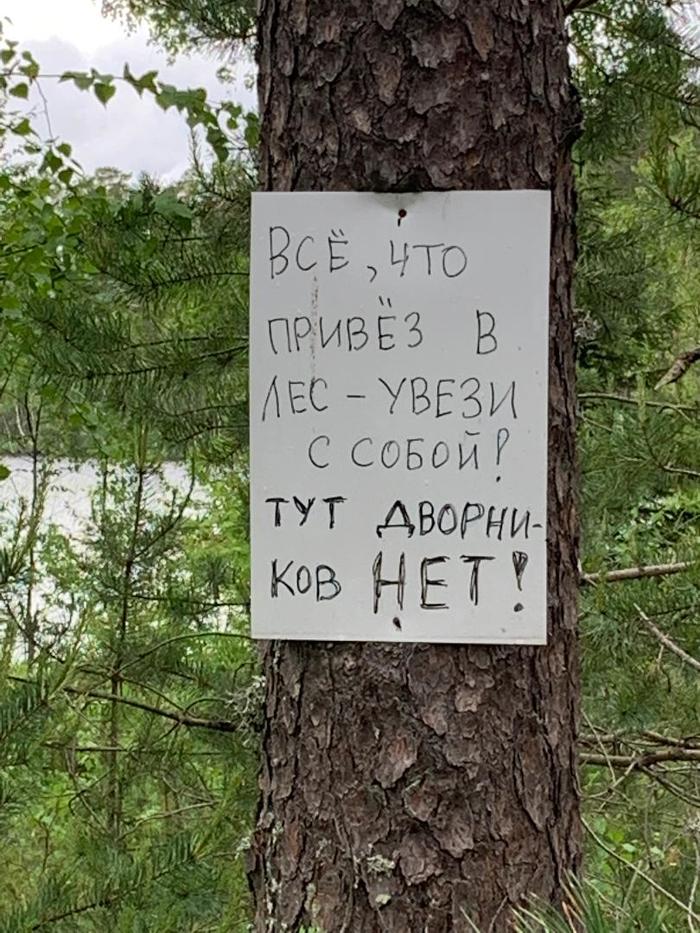 ВСЁ, ЧТО
ПРИВЁЗ В
ЛЕС - УВЕЗИ
С СОБОЙ!
ТУТ ДВОРНИ-
КОВ НЕТ!